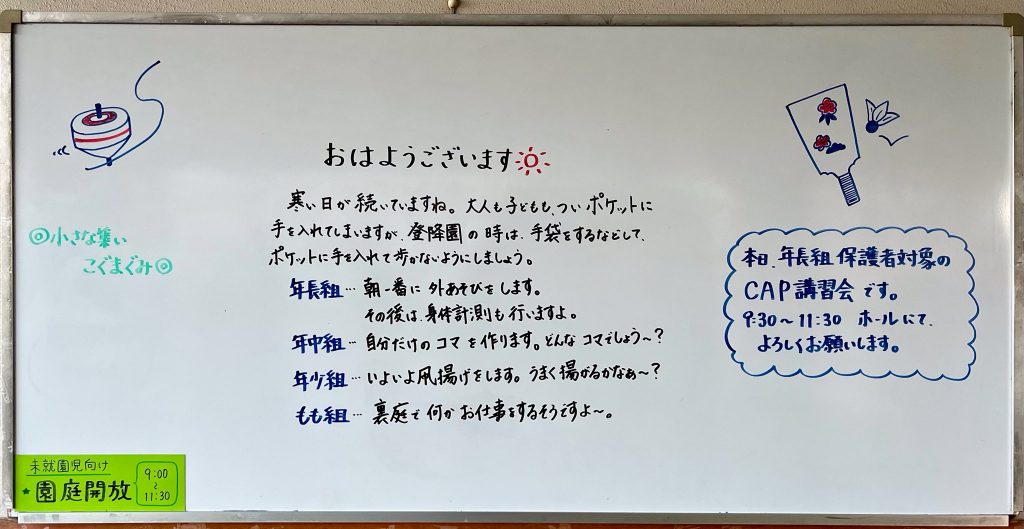 おはようございます
寒い日が続いていますね。大人も子どもも、ついポケットに
手を入れてしまいますが、登降園の時は、手袋をするなどして、
ポケットに手を入れて歩かないようにしましょう。
年長組… 朝一番に外あそびをします。
その後は、身体計測も行いますよ。
年中組… 自分だけのコマを作ります。どんなコマでしょう〜?
年少組… いよいよ凧揚げをします。うまく揚がるかなぁ〜?
もも組… 裏庭で何かお仕事をするそうですよ〜。
◎小さな集い
こぐまぐみ◎
本日、年長組保護者対象の
CAP講習会です。
9:30〜11:30 ホールにて、
よろしくお願いします。
未就園児向け
★園庭開放
9:00
〜
11:30